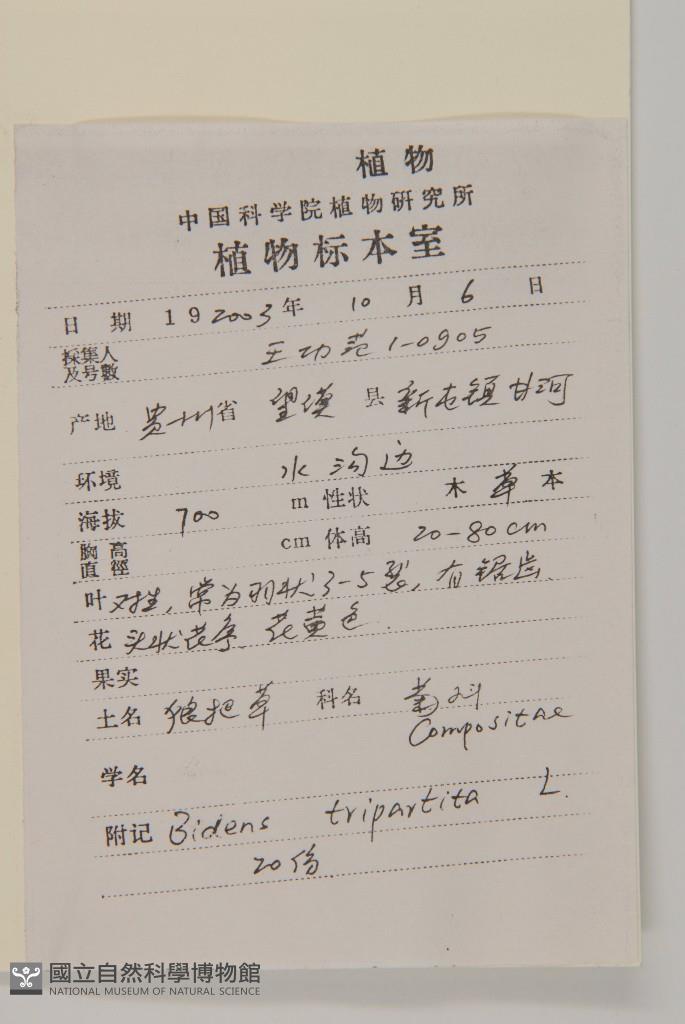 植物
中国科学院植物研究所
植物标本室
日 期 19 2003 年 10 月 6 日
採集人及号數 王功范 1-0905
产地 贵州省 望谟 县 新屯镇甘河
环境 水沟边
海拔 700 m 性状 木 草 本
胸高直徑 cm 体高 20-80cm
叶 对生, 常为羽状3-5裂, 有锯齿.
花 头状花序, 花黄色.
果实
土名 狼把草 科名 菊科
Compositae
学名
附记 Bidens tripartita L.
20份
國立自然科學博物館
NATIONAL MUSEUM OF NATURAL SCIENCE